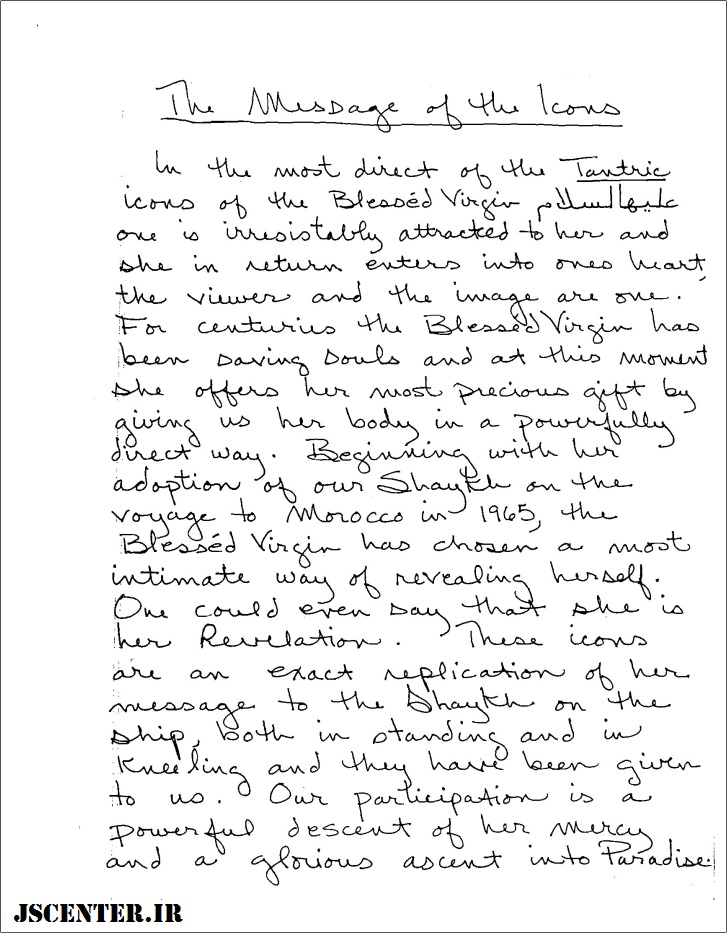 The Message of the Icons
In the most direct of the Tantric
icons of the Blesséd Virgin عليها السلام
one is irresistably attracted to her and
she in return enters into ones heart,
the viewer and the image are one.
For centuries the Blesséd Virgin has
been saving souls and at this moment
she offers her most precious gift by
giving us her body in a powerfully
direct way. Beginning with her
adoption of our Shaykh on the
voyage to Morocco in 1965, the
Blesséd Virgin has chosen a most
intimate way of revealing herself.
One could even say that she is
her Revelation. These icons
are an exact replication of her
message to the Shaykh on the
ship, both in standing and in
kneeling and they have been given
to us. Our participation is a
powerful descent of her mercy
and a glorious ascent into Paradise.
JSCENTER.IR